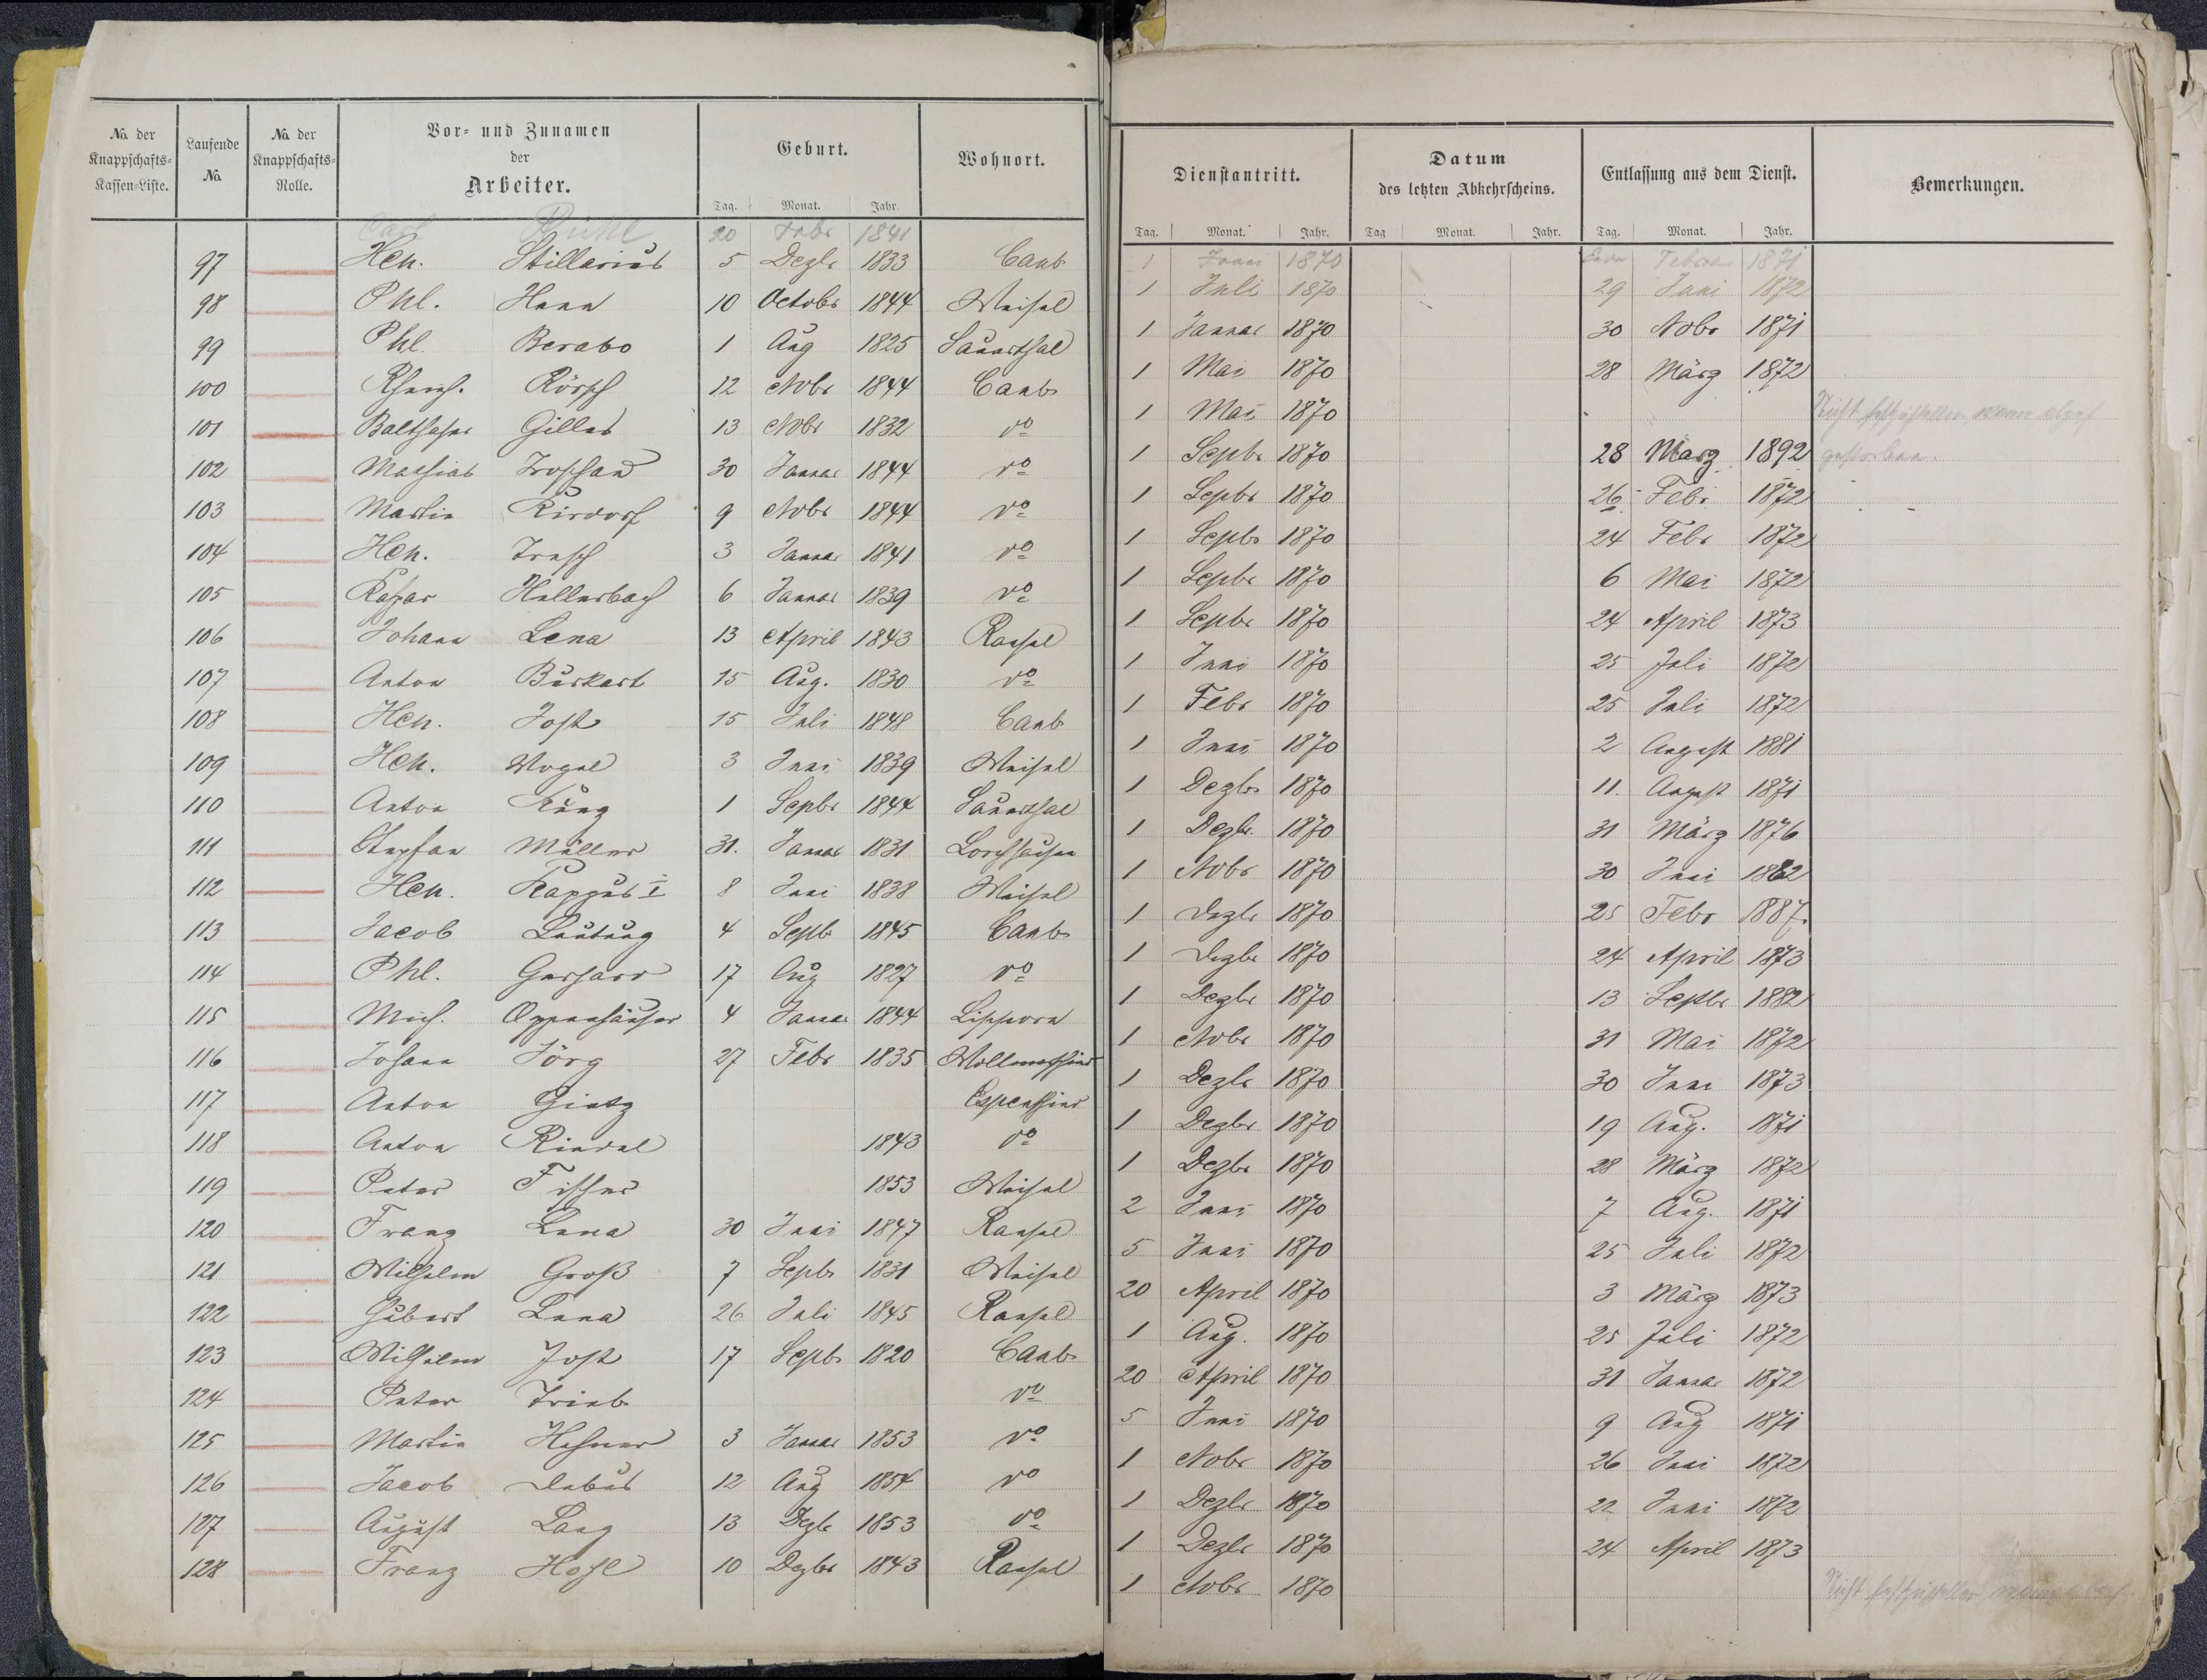 No. der Knappschafts-Kassen-Liste.
Laufende No.
No. der Knappschafts-Rolle.
Vor- und Zunamen
der
Arbeiter.
Geburt.
Wohnort.
Tag. Monat. Jahr.
Carl Rühl 20 Febr 1841
97 Hch. Stillarius 5 Dezbr 1833 Caub
98 Phl. Hann 10 Octobr 1844 Weisel
99 Phl. Berabo 1 Aug 1825 Sauerthal
100 12 Nobr 1844 Caub
101 Balthasar Gilles 13 Nobr 1832 do
102 Mathias 30 Januar 1844 do
103 Martin Kirdorf 9 Nobr 1844 do
104 Hch. 3 Januar 1841 do
105 Kaspar Hellerbach 6 Januar 1839 do
106 Johann Lena 13 April 1843 Ransel
107 Anton Burkart 15 Aug. 1830 do
108 Hch. Jost 15 Juli 1848 Caub
109 Hch. Vogel 3 Juni 1839 Weisel
110 Anton Kunz 1 Septbr 1844 Sauerthal
111 Stephan Müller 31. Januar 1831 Lorchhausen
112 Hch. Kappus I 8 Juni 1838 Weisel
113 Jacob 4 Septb 1845 Caub
114 Phl. Gerhard 17 Aug 1827 do
115 Mich. Oppenhäuser 4 Januar 1844 Lipporn
116 Johann Jörg 27 Febr 1835 Wollmerschied
117 Anton Gietz Espenschied
118 Anton Riedel 1843 do
119 Peter Fischer 1853 Weisel
120 Franz Lena 30 Juni 1847 Ransel
121 Wilhelm Groß 7 Septbr 1831 Weisel
122 Hubert Lena 26 Juli 1845 Ransel
123 Wilhelm Jost 17 Septb 1820 Caub
124 Peter Trieb do
125 Martin Hefner 3 Januar 1853 do
126 Jacob Debus 12 Aug 1854 do
127 August Lang 13 Dezbr 1853 do
128 Franz Hohl 10 Dezbr 1843 Ransel
Dienstantritt.
Datum
des letzten Abkehrscheins.
Entlassung aus dem Dienst.
Bemerkungen.
Tag. Monat. Jahr. Tag Monat. Jahr. Tag. Monat. Jahr.
1 1870 Februar 1871
1 Juli 1870 29 Juni 1872
1 Januar 1870 30 Nobr 1871
1 Mai 1870 28 März 1872
1 Mai 1870 Nicht festzustellen wann
1 Septbr 1870 28 März 1892 gestorben.
1 Septbr 1870 26. Febr. 1872
1 Septbr 1870 24 Febr 1872
1 Septbr 1870 6 Mai 1872
1 Septbr 1870 24 April 1873
1 Juni 1870 25 Juli 1872
1 Febr 1870 25 Juli 1872
1 Juni 1870 2 August 1881
1 Dezbr 1870 11. August 1871
1 Dezbr. 1870 31 März 1876
1 Nobr 1870 30 Juni 1882
1 Dezbr 1870 25 Febr 1887.
1 Dezbr 1870 24 April 1873
1 Dezbr 1870 13 Septbr 1882
1 Nobr 1870 31 Mai 1872
1 Dezbr 1870 30 Juni 1873
1 Dezbr 1870 19 Aug. 1871
1 Dezbr 1870 28 März 1872
2 Juni 1870 7 Aug. 1871
5 Juni 1870 25 Juli 1872
20 April 1870 3 März 1873
1 Aug. 1870 25 Juli 1872
20 April 1870 31 Januar 1872
5 Juni 1870 9 Aug 1871
1 Nobr 1870 26 Juni 1872
1 Dezbr 1870 22 Juni 1872
1 Dezbr 1870 24 April 1873
1 Nobr 1870 Nicht festzustellen